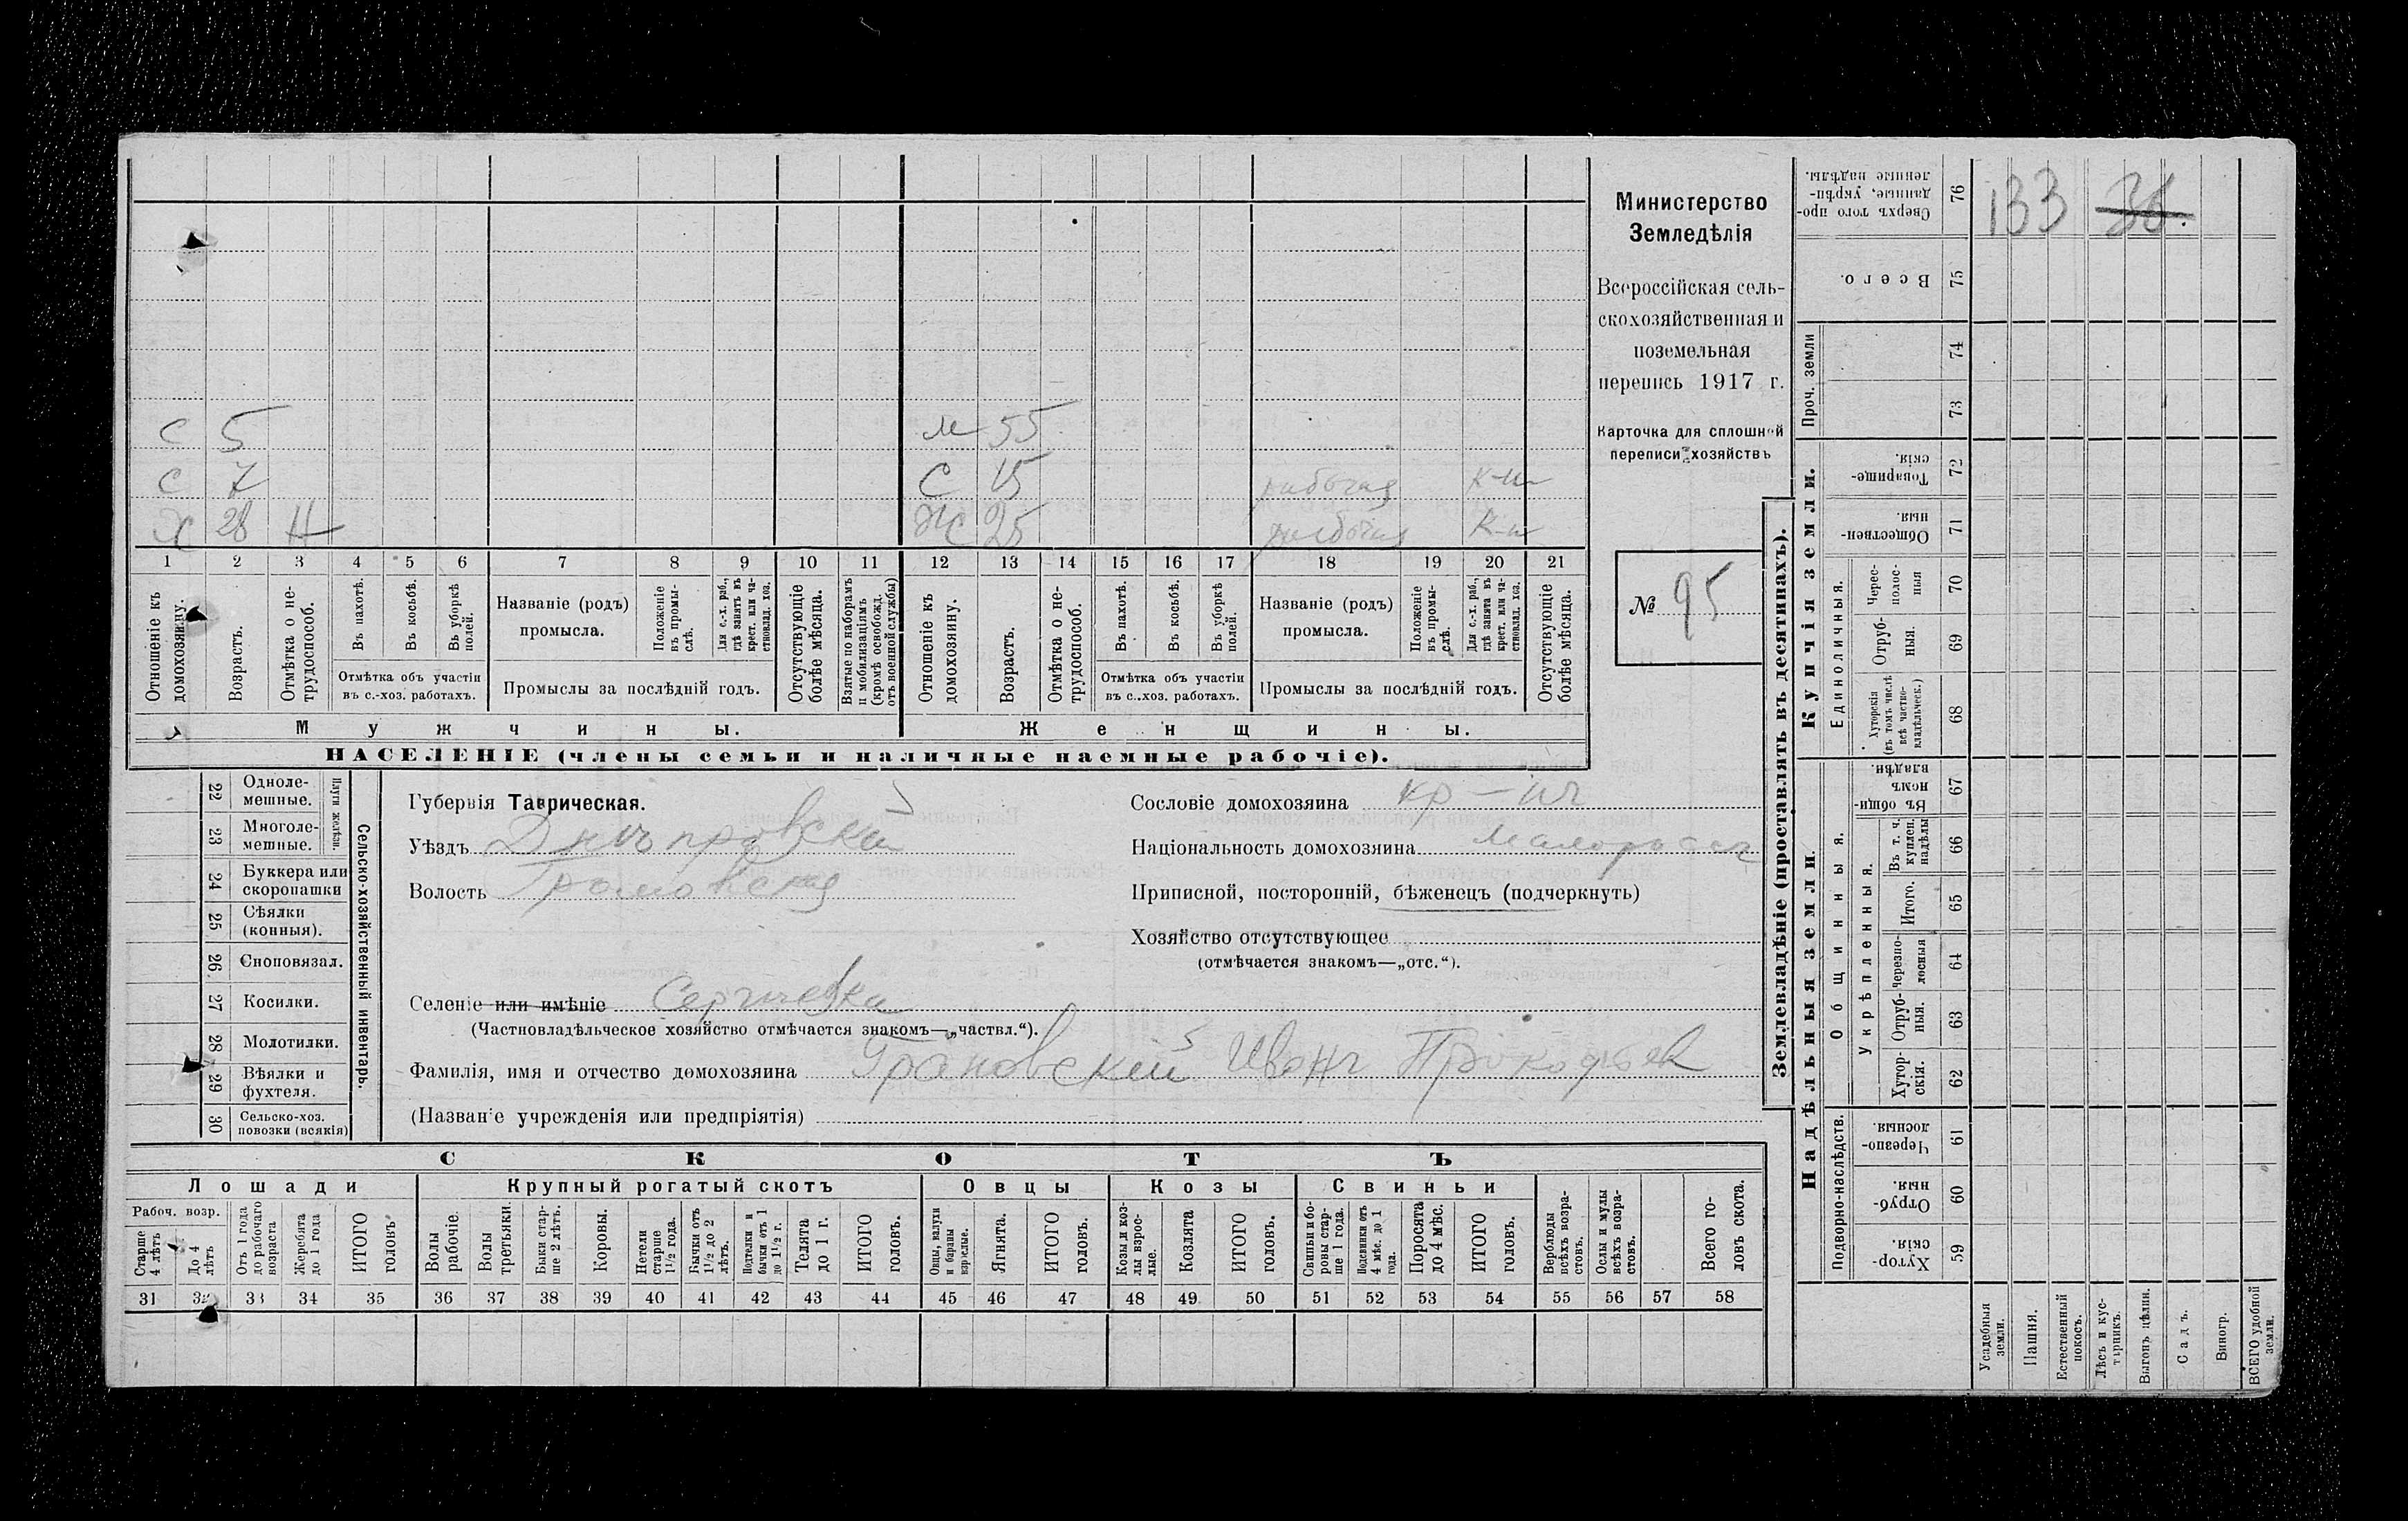 С 5 м 55
С 7 С 15 рабочая к-н
Х 28 Н Ж 25 рабочая к-н
1 2 3 4 5 6 7 8 9 10 11 12 13 14 15 16 17 18 19 20 21
Отношеніе къ домохозяину.
Возрастъ.
Отмѣтка о не-трудоспособ.
Въ пахотѣ.
Въ косьбѣ.
Въ уборкѣ полей.
Отмѣтка объ участіи
въ с.-хоз. работахъ.
Названіе (родъ)
промысла.
Положеніе въ промы-слѣ.
Для с.-х. раб., гдѣ занятъ въ крест. или ча-стновлад. хоз.
Промыслы за послѣдній годъ.
Отсутствующіе болѣе мѣсяца.
Взятые по наборамъ и мобилизаціямъ (кромѣ освобожд. отъ военной службы)
Отношеніе къ домохозяину.
Возрастъ.
Отмѣтка о не-трудоспособ.
Въ пахотѣ.
Въ косьбѣ.
Въ уборкѣ полей.
Отмѣтка объ участіи
въ с.-хоз. работахъ.
Названіе (родъ)
промысла.
Положеніе въ промы-слѣ.
Для с.-х. раб., гдѣ занята въ крест. или ча-стновлад. хоз.
Промыслы за послѣдній годъ.
Отсутствующіе болѣе мѣсяца.
Мужчины.
Женщины.
НАСЕЛЕНІЕ (члены семьи и наличные наемные рабочіе).
Министерство
Земледѣлія
Всероссійская сель-
скохозяйственная и
поземельная
перепись 1917 г.
Карточка для сплошной
переписи хозяйствъ
№ 95
22 Одноле-мешные.
23 Многоле-мешные.
Плуги желѣзн.
24 Буккера или скоропашки
25 Сѣялки (конныя).
26 Сноповязал.
27 Косилки.
28 Молотилки.
29 Вѣялки и фухтеля.
30 Сельско-хоз. повозки (всякія)
Сельско-хозяйственный инвентарь.
Губернія Таврическая.
Уѣздъ Днѣпровскій
Волость Громовская
Сословіе домохозяина кр-нъ
Національность домохозяина малороссъ
Приписной, посторонній, бѣженецъ (подчеркнуть)
Хозяйство отсутствующее
(отмѣчается знакомъ—„отс.“).
Селеніе или имѣніе Сергіевка
(Частновладѣльческое хозяйство отмѣчается знакомъ—„частвл.“).
Фамилія, имя и отчество домохозяина Грановскій Иванъ Прокофьев
(Названіе учрежденія или предпріятія)
СКОТЪ
Лошади
Крупный рогатый скотъ
Овцы
Козы
Свиньи
Рабоч. возр.
Старше 4 лѣтъ
До 4 лѣтъ
Отъ 1 года до рабочаго возраста
Жеребята до 1 года
ИТОГО головъ
Волы рабочіе.
Волы третьяки.
Быки стар-ше 2 лѣтъ.
Коровы.
Нетели старше 1½ года.
Бычки отъ 1½ до 2 лѣтъ.
Подтелки и бычки отъ 1 до 1½ г.
Телята до 1 г.
ИТОГО головъ.
Овцы, валухи и бараны взрослые.
Ягнята.
ИТОГО головъ.
Козы и коз-лы взрос-лые.
Козлята
ИТОГО головъ.
Свиньи и бо-ровы стар-ше 1 года.
Подсвинки отъ 4 мѣс. до 1 года.
Поросята до 4 мѣс.
ИТОГО головъ.
Верблюды всѣхъ возра-стовъ.
Ослы и мулы всѣхъ возра-стовъ.
Всего го-ловъ скота.
31 32 33 34 35 36 37 38 39 40 41 42 43 44 45 46 47 48 49 50 51 52 53 54 55 56 57 58
Землевладѣніе (проставлять въ десятинахъ).
Купчія земли.
Надѣльныя земли.
Сверхъ того про-данные, укрѣп-ленные надѣлы. 76 133 36.
Всего. 75
Проч. земли 74
73
Товарище-скія. 72
Обществен-ныя. 71
Единоличныя.
Черес-полос-ныя 70
Отруб-ныя. 69
Хуторскія (въ томъ числѣ всѣ частно-владѣльческ.) 68
Общинныя.
Въ общи-номъ владѣн. 67
Укрѣпленныя.
Въ т. ч. куплен. надѣлы 66
Итого. 65
Черезпо-лосныя 64
Отруб-ныя. 63
Хутор-скія. 62
Подворно-наслѣдств.
Черезпо-лосныя. 61
Отруб-ныя. 60
Хутор-скія. 59
Усадебныя земли.
Пашня.
Естественный покосъ.
Лѣсъ и кус-тарникъ.
Выгонъ цѣлин.
Садъ.
Виногр.
ВСЕГО удобной земли.